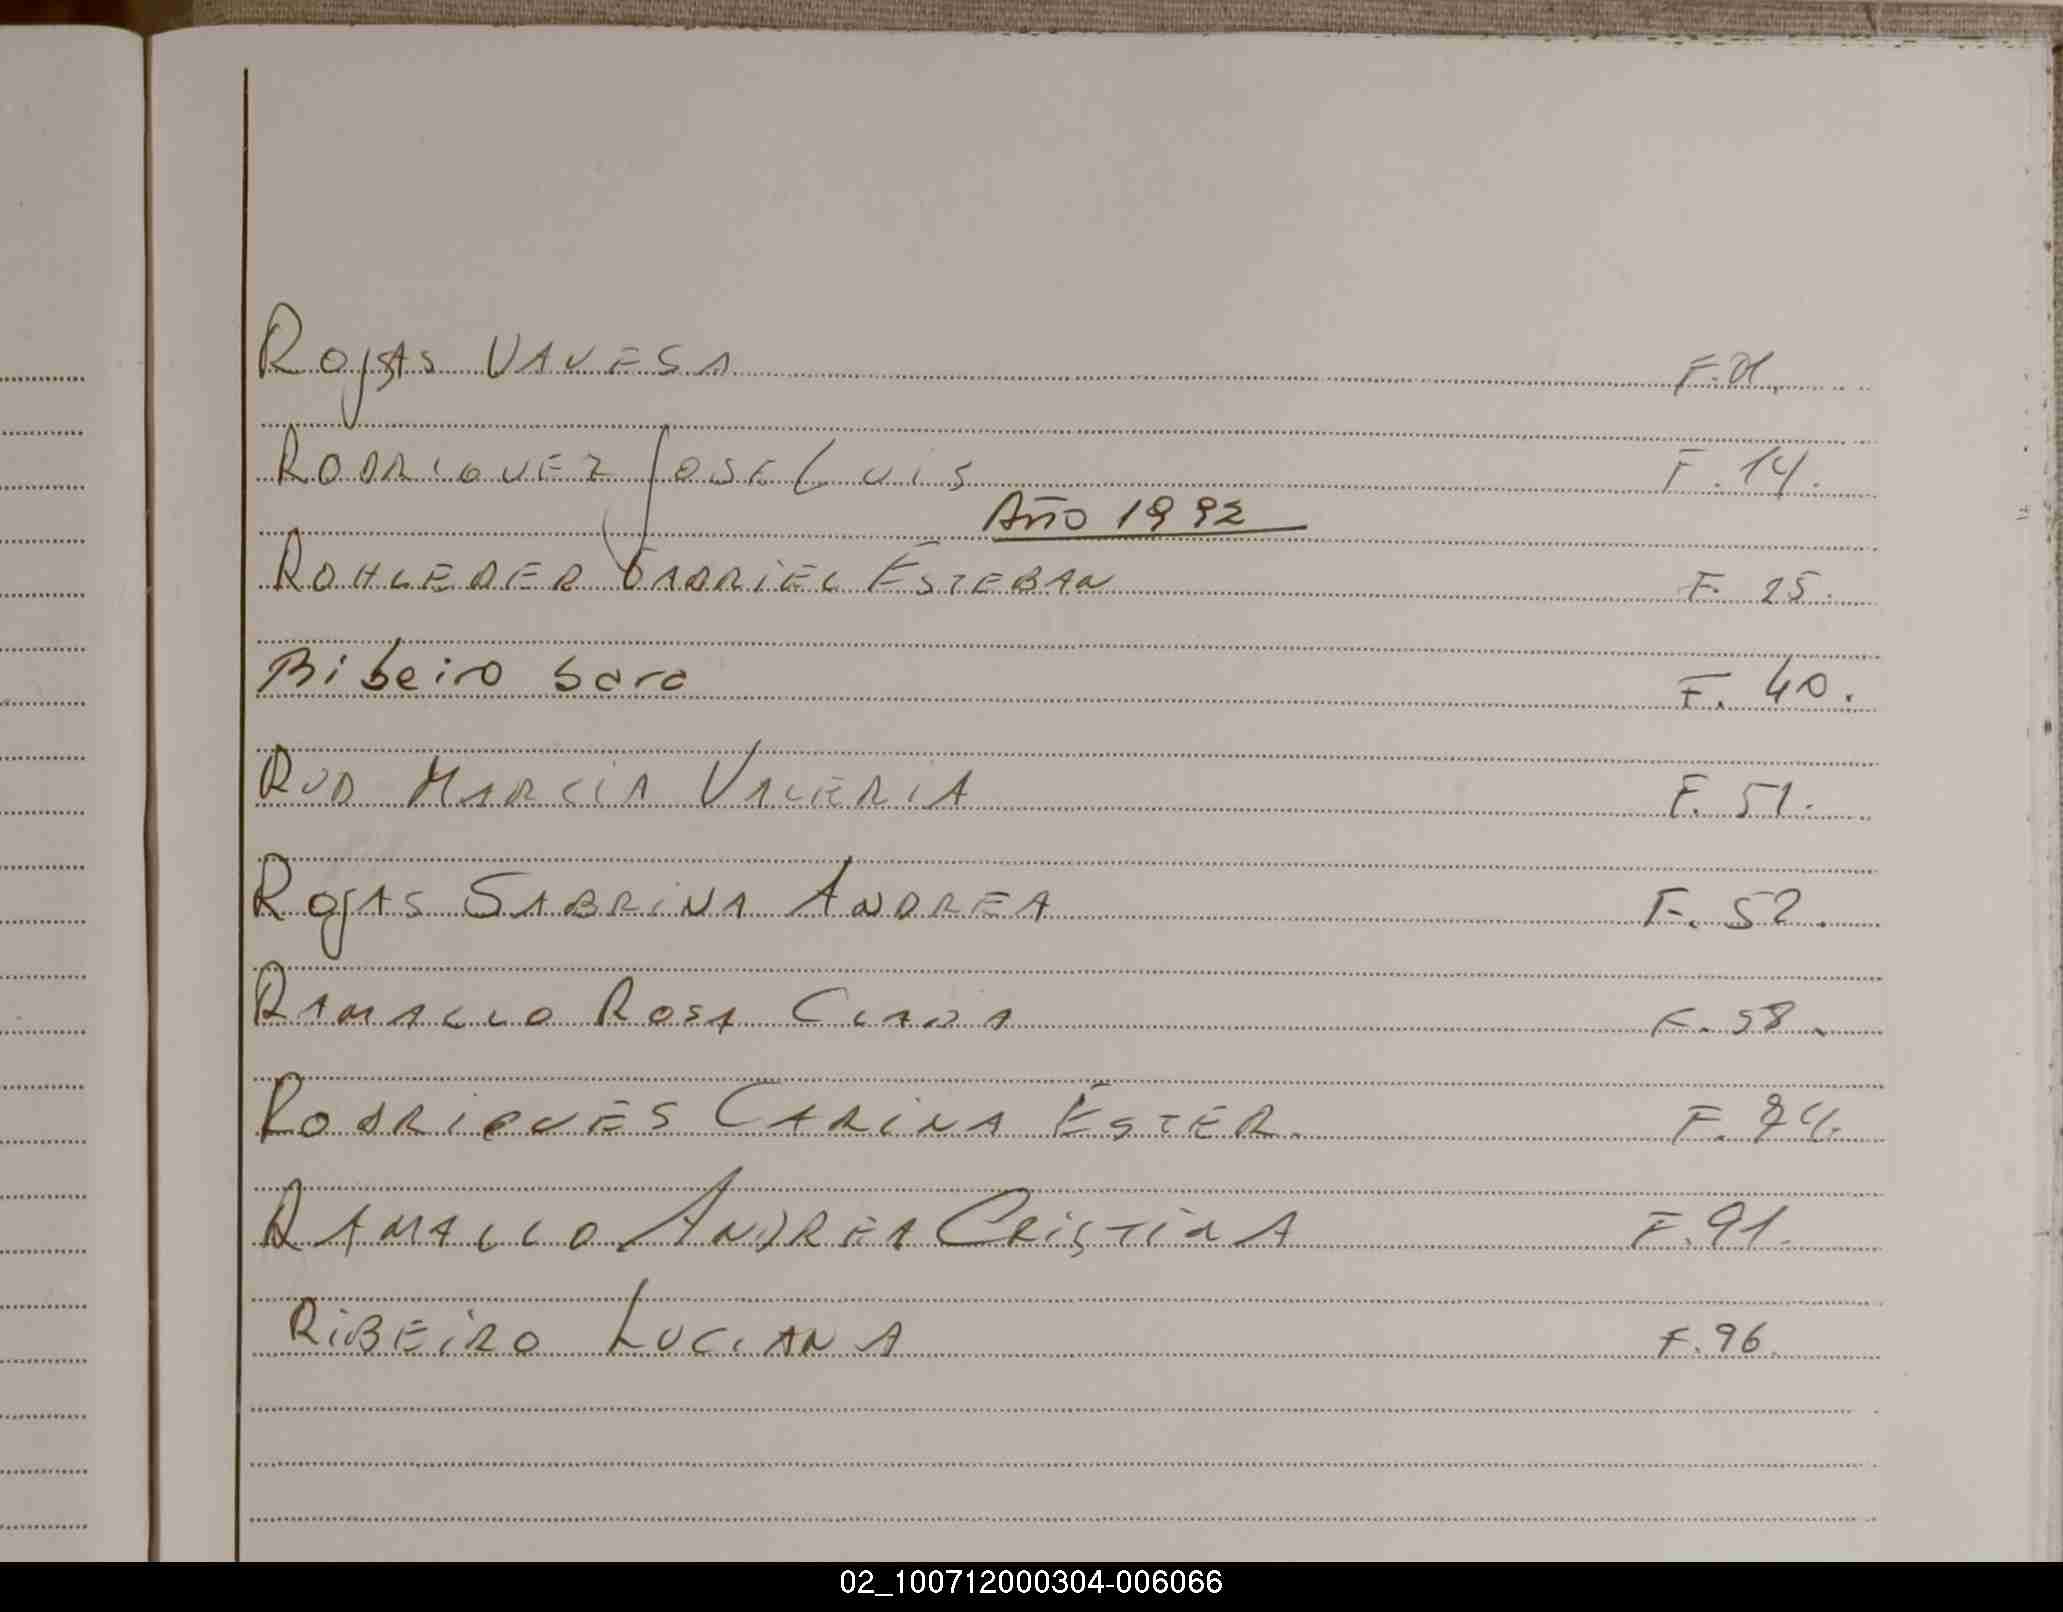 Rojas Vanesa F. 01.
Rodriguez Jose Luis F. 14.
Año 1992
Rohleder Gabriel Esteban F. 25.
Ribeiro Sara F. 40.
Rud Marcia Valeria F. 51.
Rojas Sabrina Andrea F. 52.
Ramallo Rosa Clara F. 58.
Rodrigues Carina Ester. F. 84.
Ramallo Andrea Cristina F. 91.
Ribeiro Luciana F. 96.
02_100712000304-006066